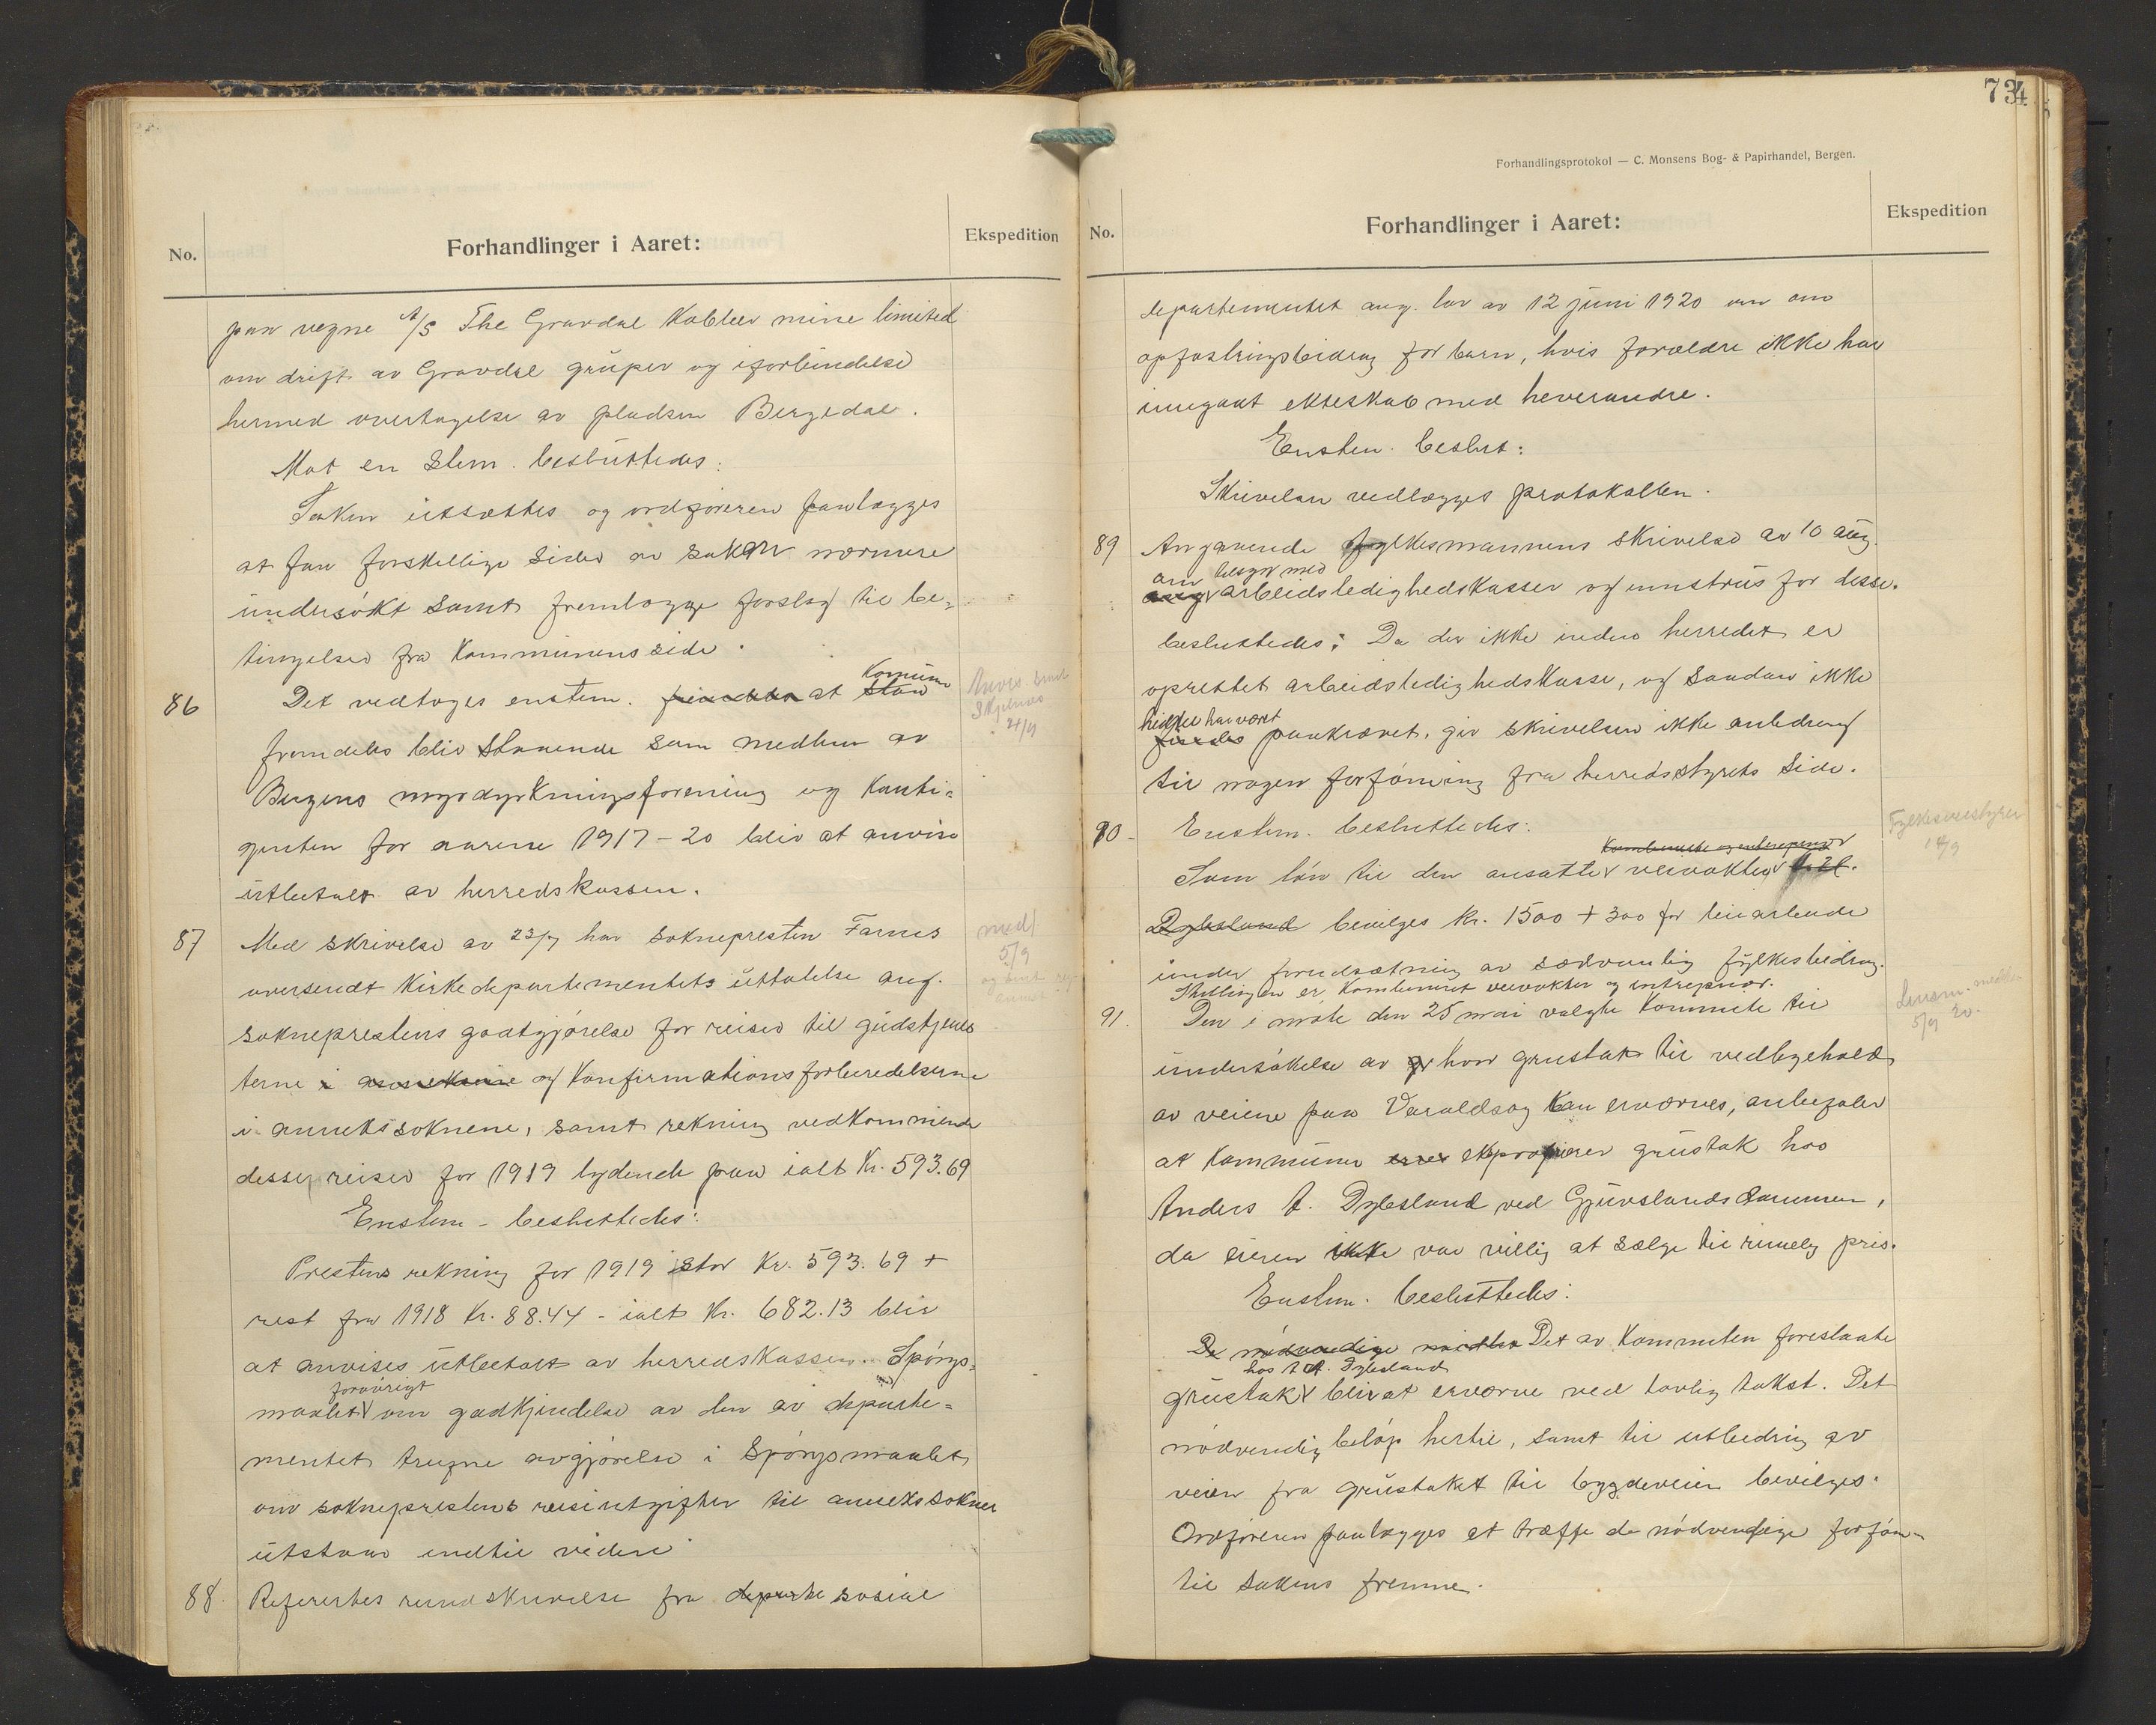 No.
Forhandlinger i Aaret:
Ekspedition
paa vegne A/S The Gravdal Kobber mine limited
om drift av Gravdal gruper og iforbindelse
hermed overtagelse av pladsen Bergedal.
Mot en stem. besluttedes:
Saken utsættes og ordføreren paalægges
at faa forskellige sider av saken nærmere
undersøkt samt fremlægge forslag til be-
tingelser fra Kommunens side.
Komune
86 Det vedtoges enstem. at staa
fremdeles blir staaende som medlem av
Bergens myrdyrkningsforening og konti-
genten for aarene 1917-20 blir at anvise
utbetalt av herredskassen.
87 Med skrivelse av 23/7 har soknepresten Farnes
oversendt Kirkedepartementets uttalelse ang.
sokneprestens godtgjørelse for reiser til gudstjenes
terne i og Konfirmationsforberedelserne
i annekssoknene, samt rekning vedkommende
disse reiser for 1919 lydende paa ialt Kr. 593.69
Enstem. besluttedes:
Prestens rekning for 1919 stor Kr. 593.69 +
rest fra 1918 Kr. 88.44 - ialt Kr. 682.13 blir
at anvises utbetalt av herredskassen. Spörgs-
forøvrigt
maalet om godkjendelse av den av departe-
mentet trufne avgjørelse i Spörgsmaalet
om sokneprestens reiseutgifter til annekssoknene
utstaar indtil videre
88. Refererites rundskrivelse fra departe sosial
73 4
Forhandlingsprotokol — C. Monsens Bog- & Papirhandel, Bergen.
No.
Forhandlinger i Aaret:
Ekspedition
departementet ang. lov av 12 juni 1920 om
opfostringsbidrag for barn, hvis forældre ikke har
inngaat ekteskab med hverandre.
Enstem. beslut:
Skrivelsen vedlægges protokollen.
89 Angaaende fylkesmannens skrivelse av 10 aug.
om tilsyn med
ang arbeidsledighedskasser og innstrus for disse.
besluttedes: Da der ikke inden herredet er
oprettet arbeidsledighedskasse, og saadan ikke
hidtil har været
paakrævet, gir skrivelsen ikke anledning
til nogen forføining fra herredsstyrets side.
90 - Enstem. besluttedes:
Som løn til den ansatte veivokter
Dybsland bevilges Kr. 1500 + 300 for
under forudsætning av sedvanlig fylkesbidrag.
Stillingen er Kombinert veivokter og entrepenør.
91. Den i møte den 25 mai valgte Kommite til
undersøkelse av hvor grustak til vedligehold
av veiene paa Varaldsøy kan erværves, anbefaler
at Kommunen exproprierer grustak hos
Anders A. Dybsland ved Gjuvslandsdammen,
da eieren ikke var villig at sælge til rimelig pris.
Enstem. besluttedes:
De nödvendige midler Det av Kommiten foreslaate
hos A A. Dybsland
grustak blir at erværve ved lovlig takst. Det
nödvendig beløp hertil, samt til utbedring av
veien fra grustaket til bygdeveien bevilges.
Ordføreren paalægges at træffe de nödvendige forføin-
til sakens fremme.